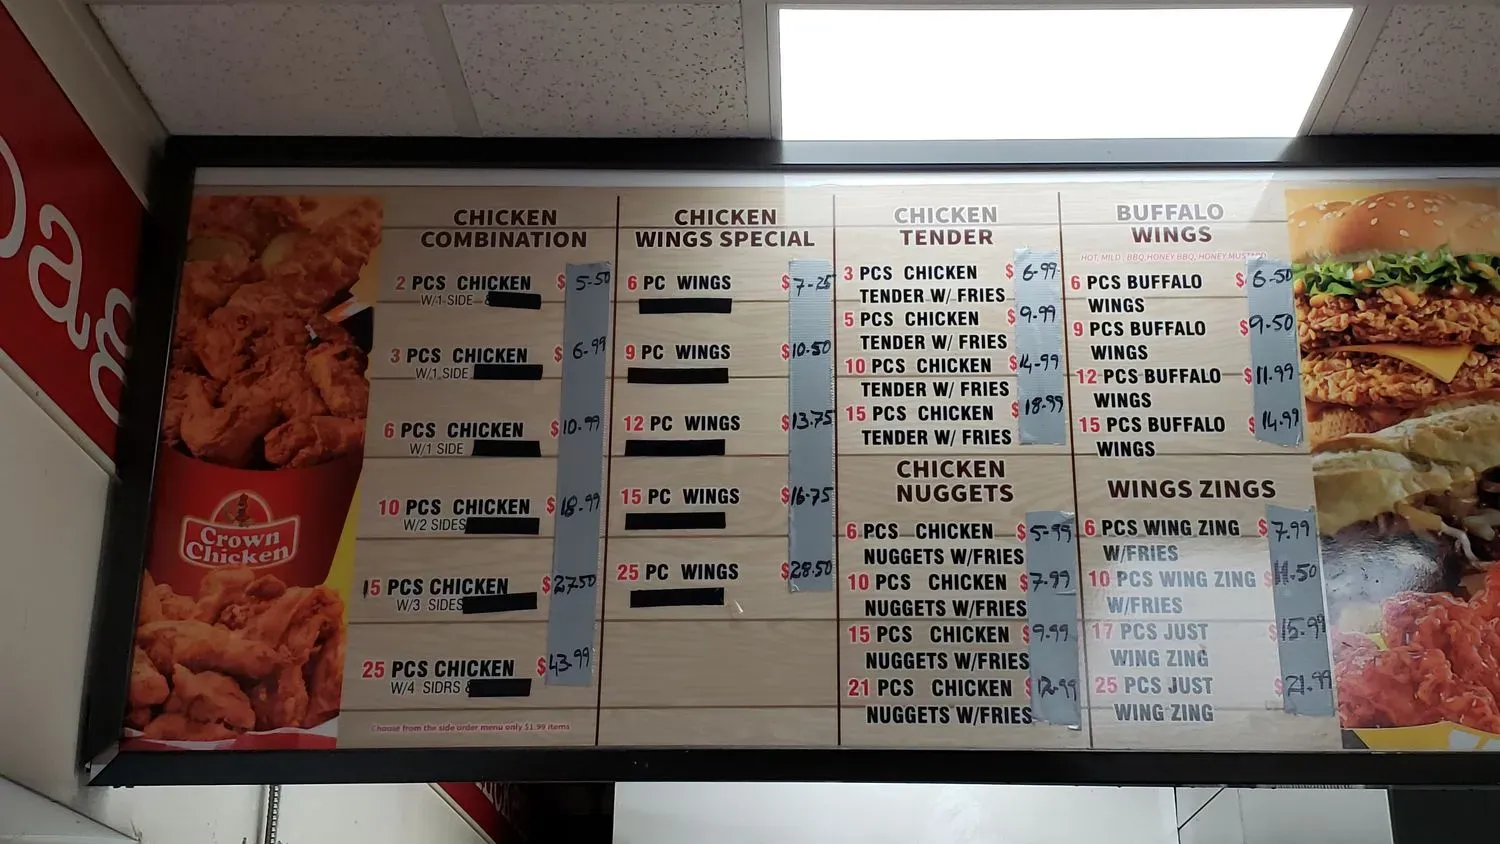 CHICKEN
COMBINATION
2 PCS CHICKEN $ 5-50
W/1 SIDE &
3 PCS CHICKEN $ 6-99
W/1 SIDE
6 PCS CHICKEN $10.99
W/1 SIDE
10 PCS CHICKEN $18.99
W/2 SIDES
15 PCS CHICKEN $27.50
W/3 SIDES
25 PCS CHICKEN $43.99
W/4 SIDRS &
Choose from the side order menu only $1.99 items
CHICKEN
WINGS SPECIAL
6 PC WINGS $7-25
9 PC WINGS $10-50
12 PC WINGS $13.75
15 PC WINGS $16-75
25 PC WINGS $28.50
CHICKEN
TENDER
3 PCS CHICKEN $ 6-99
TENDER W/ FRIES
5 PCS CHICKEN $9.99
TENDER W/ FRIES
10 PCS CHICKEN $14-99
TENDER W/ FRIES
15 PCS CHICKEN $18-99
TENDER W/ FRIES
CHICKEN
NUGGETS
6 PCS CHICKEN $5-99
NUGGETS W/FRIES
10 PCS CHICKEN $7-99
NUGGETS W/FRIES
15 PCS CHICKEN $9.99
NUGGETS W/FRIES
21 PCS CHICKEN $12.99
NUGGETS W/FRIES
BUFFALO
WINGS
HOT, MILD , BBQ, HONEY BBQ, HONEY MUSTARD
6 PCS BUFFALO $6-50
WINGS
9 PCS BUFFALO $9.50
WINGS
12 PCS BUFFALO $11.99
WINGS
15 PCS BUFFALO $14.99
WINGS
WINGS ZINGS
6 PCS WING ZING $7.99
W/FRIES
10 PCS WING ZING $11.50
W/FRIES
17 PCS JUST $15.99
WING ZING
25 PCS JUST $21.99
WING ZING
Crown
Chicken